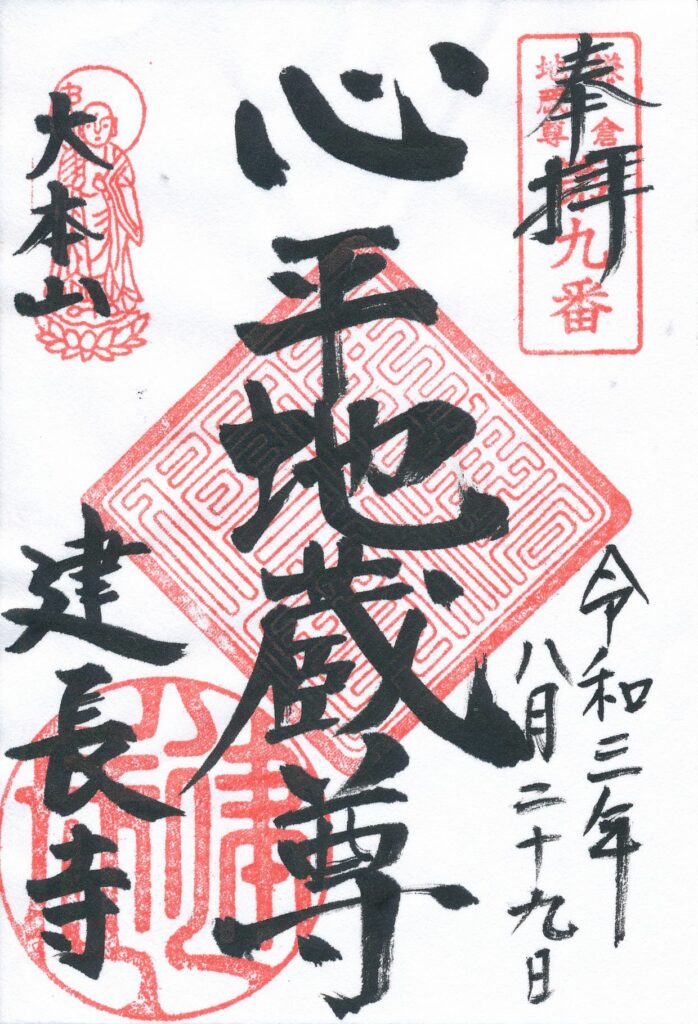 奉拝
鎌倉
地蔵尊
第九番
令和三年
八月二十九日
心平地蔵尊
大本山
建長寺